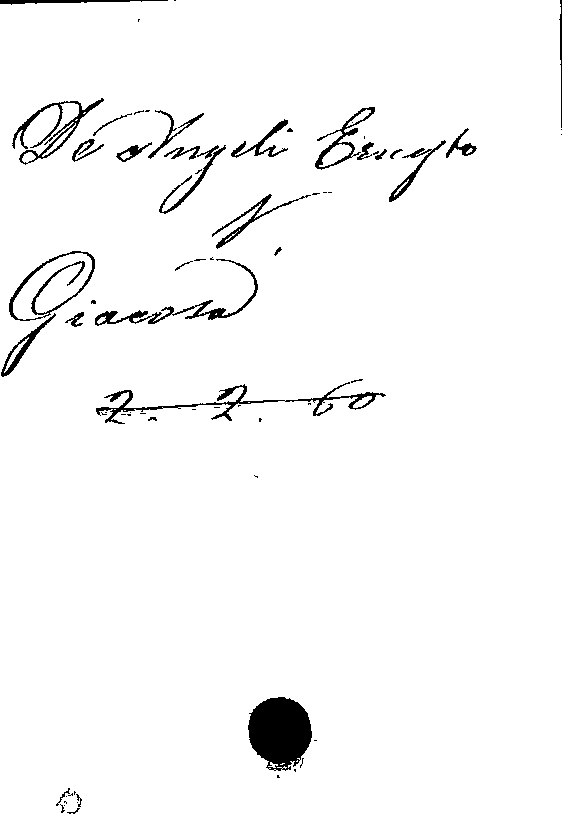 De Angeli Ernesto
V.
Giacosa
2. 2. 60